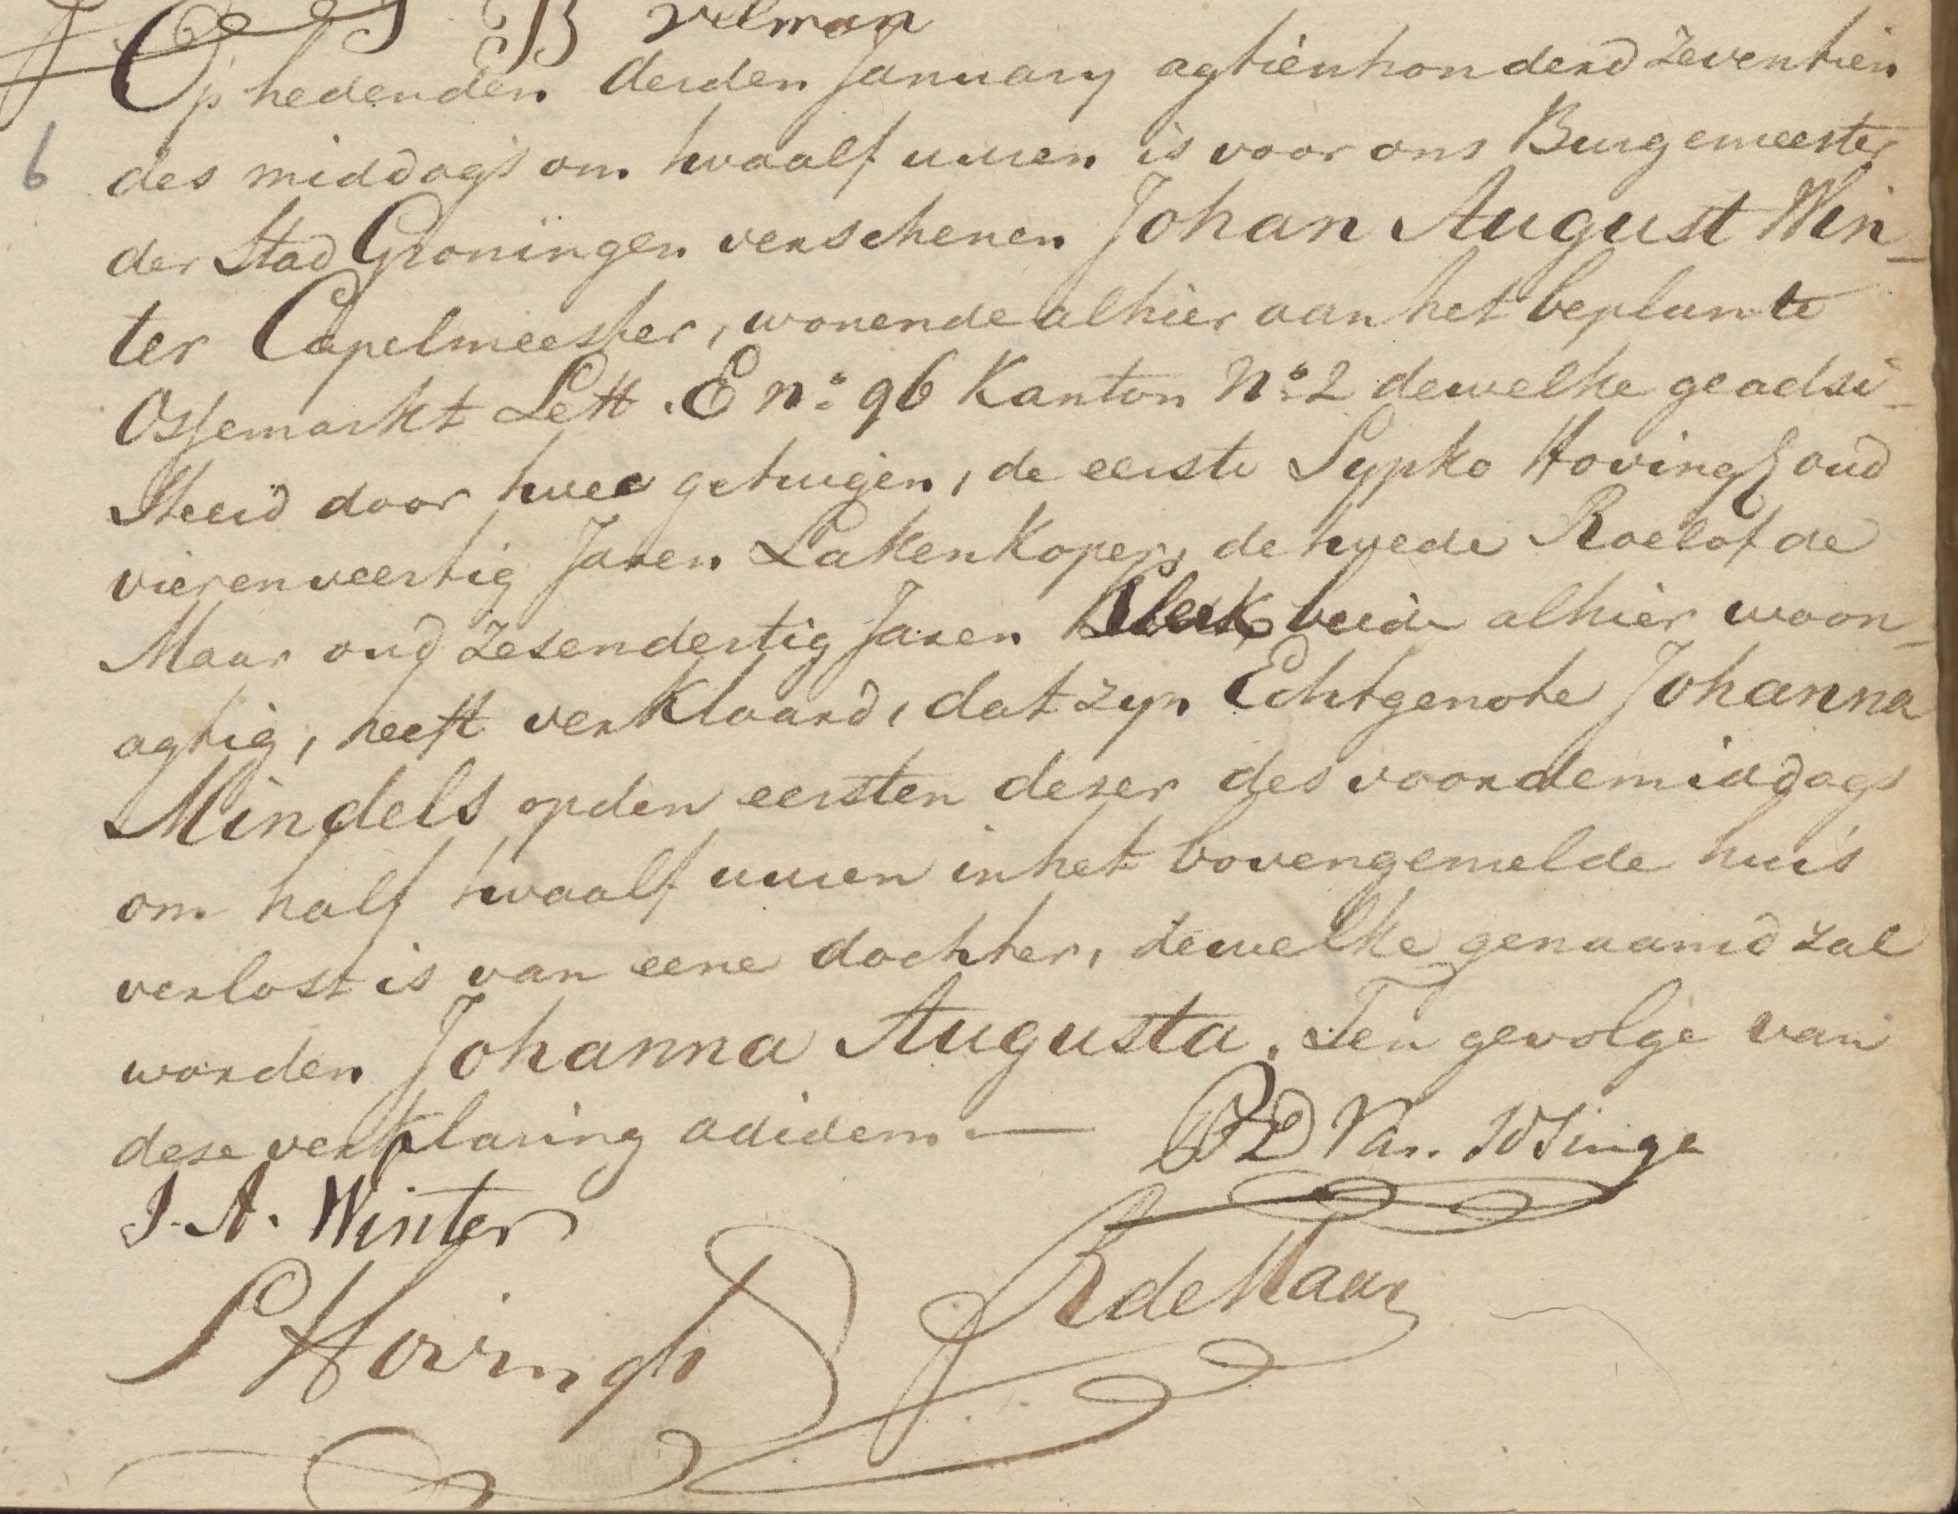 B velman
Op heden den derden January agtienhonderd zeventien
6 des middags om twaalf uuren is voor ons Burgemeester
der Stad Groningen verschenen Johan August Win-
ter Capelmeester, wonende alhier aan het beplante
Ossemarkt Lett. E no. 96 Kanton No. 2 dewelke geadsi-
steerd door twee getuigen, de eerste Sypko Hovingh oud
vierenveertig Jaren Lakenkoper, de tweede Roelof de
Maar oud zesendertig Jaren Klerk beide alhier woon-
agtig, heeft verklaard, dat zyn Echtgenote Johanna
Mindels op den eersten dezer des voordemiddags
om half twaalf uuren in het bovengemelde huis
verlost is van eene dochter, dewelke genaamd zal
worden Johanna Augusta. Ten gevolge van
deze verklaring ad idem —
J. A. Winter
Van Iddsinge
S Hovingh
R de Maar